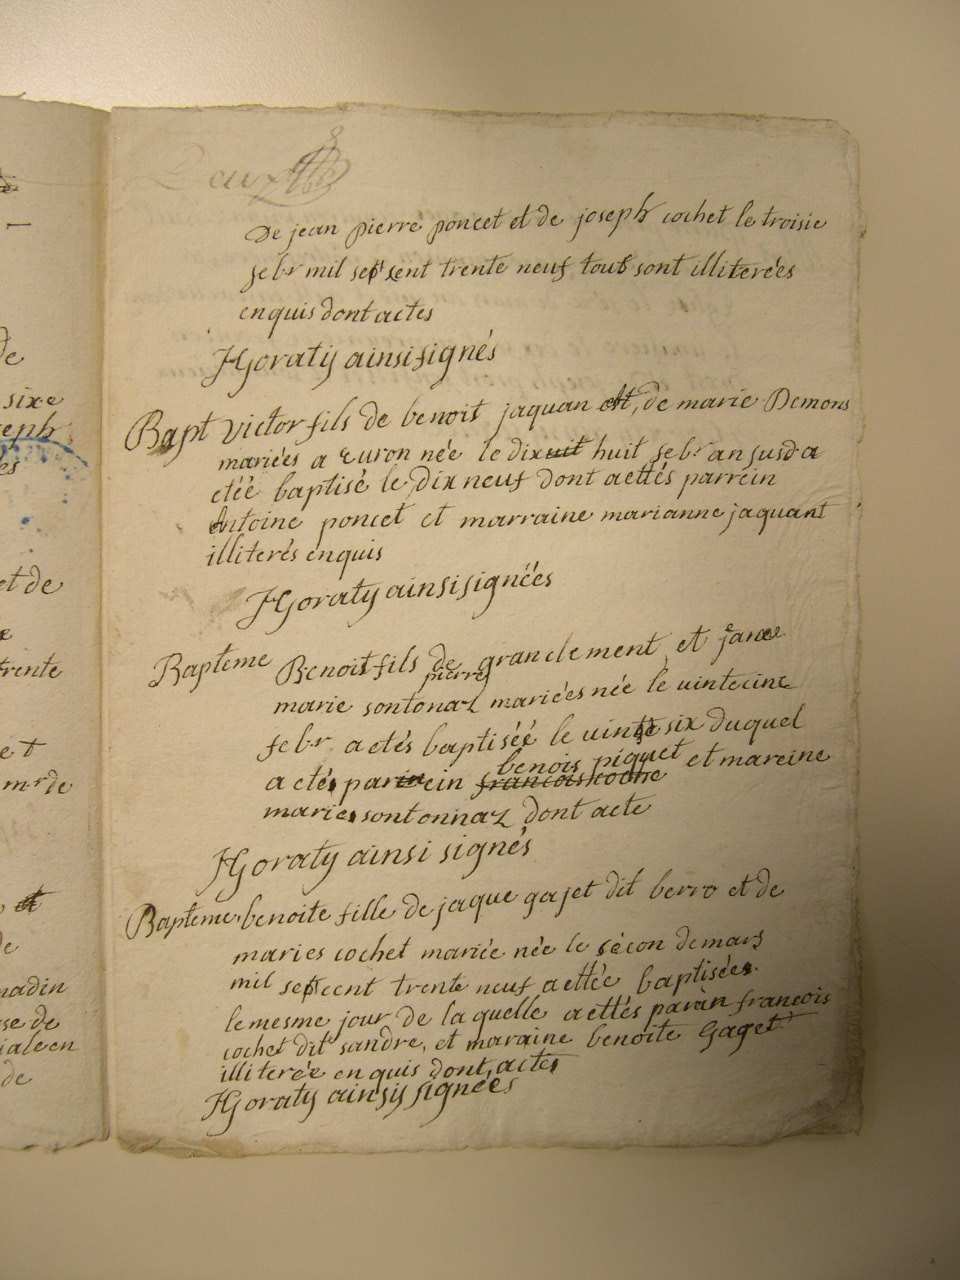 Deux
De jean pierre poncet et de joseph cochet le troisie
febr mil sept cent trente neuf tous sont illiterées
enquis dont actes
HGoraty ainsi signés
Bapt victor fils de benoit jaquan et, de marie Demons
mariées a Euron née le dix uit huit febr an susd a
etéé baptisé le dix neuf dont aettés parrein
Antoine poncet et marraine marianne jaquant
illiterés enquis
HGoraty ainsi signéés
Bapteme Benoit fils de pierre granclement et jane
marie sontonaz mariées née le vintcinc
febr a etés baptiséé le vinte six duquel
a etés parein francois benois piquet et mareine
marie sontonnaz dont acte
HGoraty ainsi signés
Bapteme benoite fille de jaque gajet dit berro et de
maries cochet mariée née le sécon de mars
mil septcent trente neuf a ettée baptisées
le mesme jour de la quelle a ettés parain francois
cochet dit sandre, et maraine benoite Gaget
illiterée enquis dont actes
HGoraty ainsiy signées
sixe
joseph
et de
trente
et
mr de
et
de
se de
de